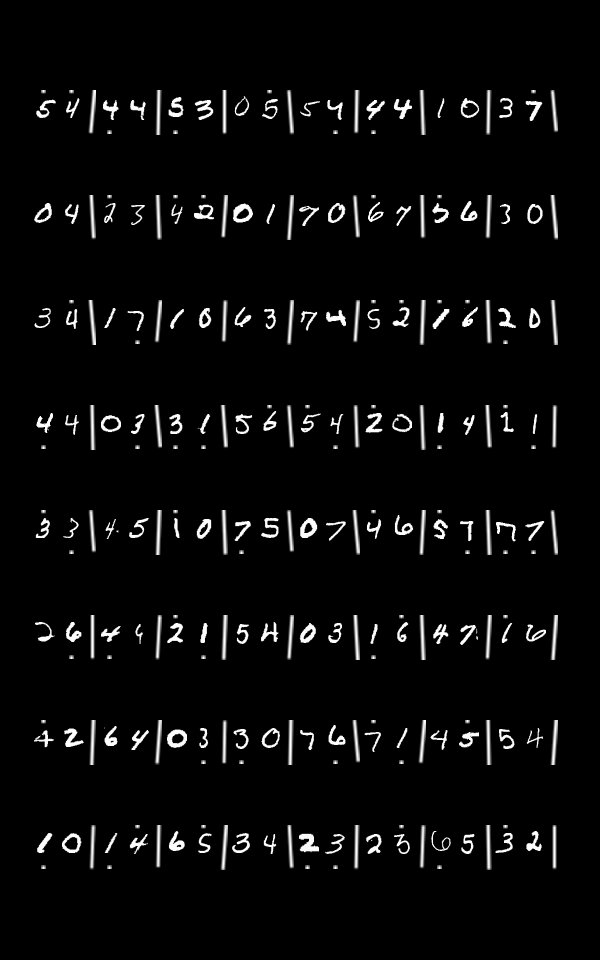 5 4 | 4 4 | 5 3 | 0 5 | 5 4 | 4 4 | 1 0 | 3 7 |
0 4 | 2 3 | 4 2 | 0 1 | 7 0 | 6 7 | 5 6 | 3 0 |
3 4 | 1 7 | 1 0 | 6 3 | 7 4 | 5 2 | 1 6 | 2 0 |
4 4 | 0 3 | 3 1 | 5 6 | 5 4 | 2 0 | 1 4 | 1 1 |
3 3 | 4 5 | 1 0 | 7 5 | 0 7 | 4 6 | 5 7 | 7 7 |
2 6 | 4 4 | 2 1 | 5 4 | 0 3 | 1 6 | 4 7 | 1 6 |
4 2 | 6 4 | 0 3 | 3 0 | 7 6 | 7 1 | 4 5 | 5 4 |
1 0 | 1 4 | 6 5 | 3 4 | 2 3 | 2 3 | 6 5 | 3 2 |